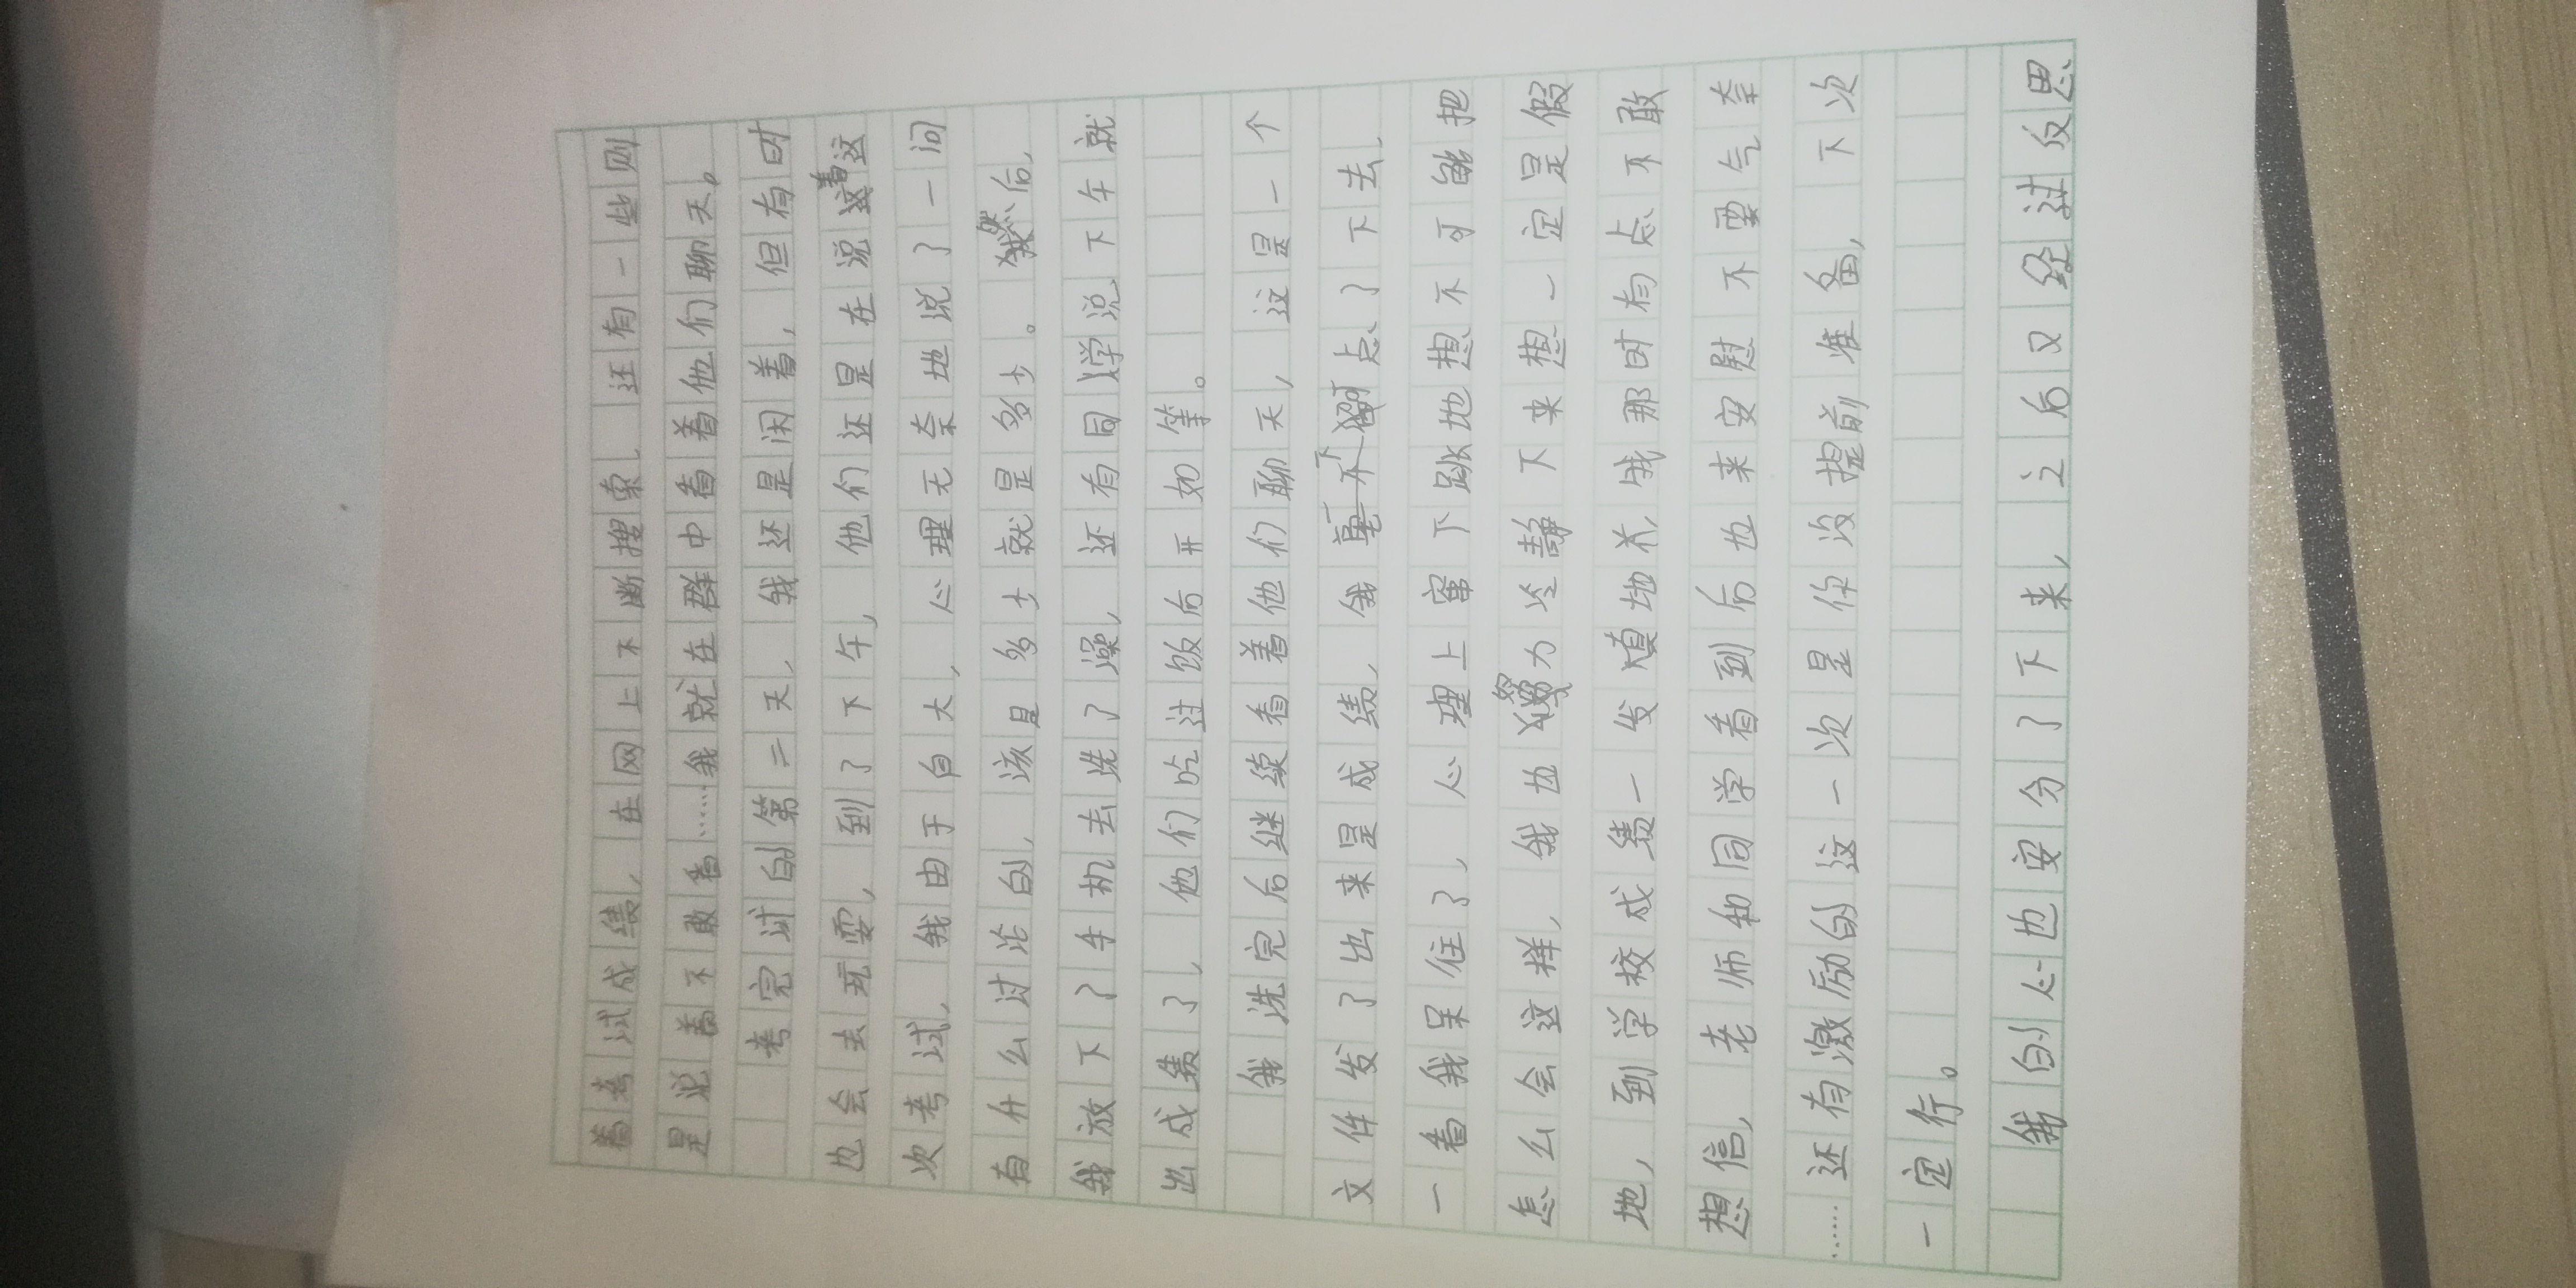 着考试成绩，在网上不断搜索，还有一些则
是说着不敢看……我就在群中看着他们聊天。
考完试的第二天，我还是闲着，但有时
也会去玩耍，到了下午，他们还是在说着这
次考试，我由于自大，心理无奈地说了一问
有什么讨论的，该是多少就是多少。然后，
我放下了手机去洗了澡，还有同学说下午就
出成绩了，他们吃过饭后开始等。
我洗完后继续看着他们聊天，这是一个
文件发了出来是成绩，我点了下去，
一看我呆住了，心理上窜下跳地想不可能把
怎么会这样，我也努力冷静下来想一定是假
地，到学校成绩一发真地不，我那时有点不敢
想信，老师和同学看到后也来安慰不要气奈
……还有激励的这一次是你没提前准备，下次
一定行。
我的心也安分了下来，之后又经过反思